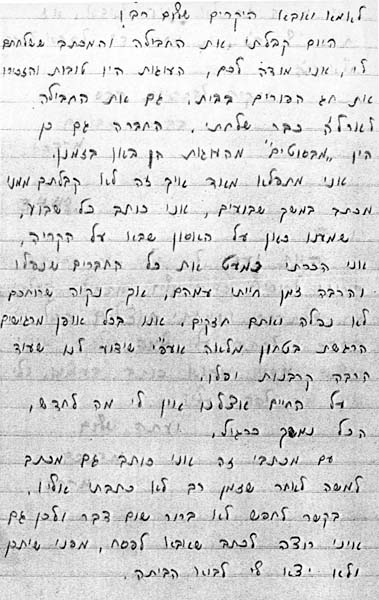 לאמא ואבא היקרים שלום רב!
היום קבלתי את החבילה והמכתב ששלחתם
לי, אני מודה לכם, העוגות היו טובות והזכירו
את חג הפורים בבית. גם את החבילה
כבר שלחתי. החברה גם כן
היו "מבסוטים" מהעוגות הן באו בזמנן.
אני מתפלא מאוד איך זה לא קבלתם ממני
מכתב במשך שבועיים, אני כותב כל שבוע,
שמענו כאן על האסון שבא על הקריה,
אני הכרתי כמעט את כל החברים שנפלו
והרבה זמן חייתי עמהם, אך נקוה שרוחכם
לא נפלה ואתם חזקים, אנו בכל אופן מרגישים
הרגשת בטחון מלאה אעפ"י שידוע לנו שעוד
הרבה קרבנות יפלו.
על החיים אצלנו אין לי מה לחדש,
הכל נמשך כרגיל.
עם מכתבי זה אני כותב גם מכתב
למשה לאחר שזמן רב לא כתבתי אליו.
בקשר לחפש לא ברור שום דבר ולכן גם
איני רוצה לכתב שאבוא לפסח, מפני שיתכן
ולא יצא לי לבוא הביתה.